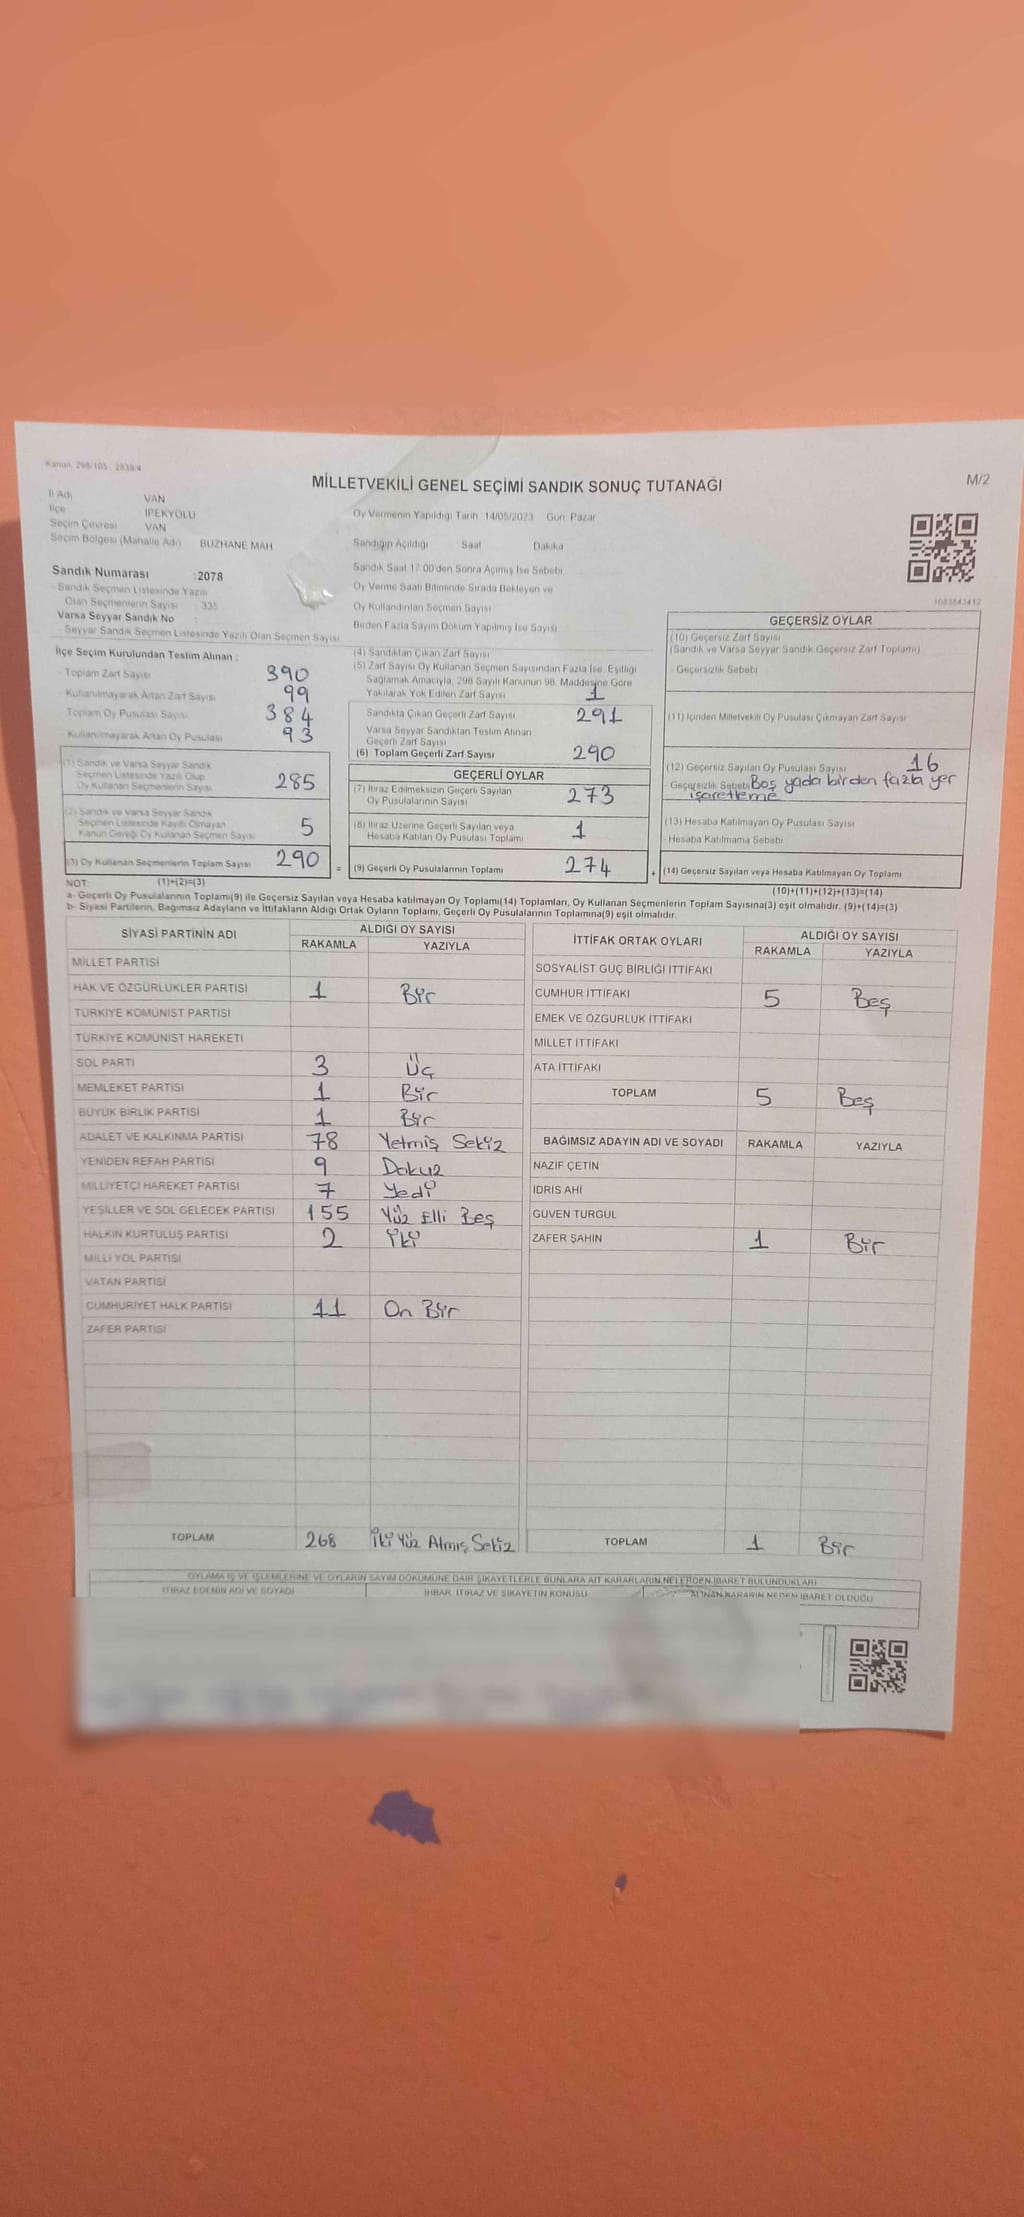 Kanun: 298/105 , 2839/4
MİLLETVEKİLİ GENEL SEÇİMİ SANDIK SONUÇ TUTANAĞI
M/2
İl Adı VAN
İlçe İPEKYOLU
Seçim Çevresi VAN
Seçim Bölgesi (Mahalle Adı) BUZHANE MAH
Sandık Numarası :2078
- Sandık Seçmen Listesinde Yazılı
Olan Seçmenlerin Sayısı : 335
Varsa Seyyar Sandık No :
- Seyyar Sandık Seçmen Listesinde Yazılı Olan Seçmen Sayısı
Oy Vermenin Yapıldığı Tarih :14/05/2023 Gün: Pazar
Sandığın Açıldığı Saat Dakika
Sandık Saat 17:00'den Sonra Açılmış İse Sebebi
Oy Verme Saati Bitiminde Sırada Bekleyen ve
Oy Kullandırılan Seçmen Sayısı
Birden Fazla Sayım Döküm Yapılmış İse Sayısı
1083843412
İlçe Seçim Kurulundan Teslim Alınan :
- Toplam Zarf Sayısı 390
- Kullanılmayarak Artan Zarf Sayısı 99
- Toplam Oy Pusulası Sayısı 384
- Kullanılmayarak Artan Oy Pusulası 93
(1) Sandık ve Varsa Seyyar Sandık
Seçmen Listesinde Yazılı Olup
Oy Kullanan Seçmenlerin Sayısı 285
(2) Sandık ve Varsa Seyyar Sandık
Seçmen Listesinde Kayıtlı Olmayan
Kanun Gereği Oy Kullanan Seçmen Sayısı 5
(3) Oy Kullanan Seçmenlerin Toplam Sayısı 290 =
(4) Sandıktan Çıkan Zarf Sayısı
(5) Zarf Sayısı Oy Kullanan Seçmen Sayısından Fazla İse, Eşitliği
Sağlamak Amacıyla, 298 Sayılı Kanunun 98. Maddesine Göre
Yakılarak Yok Edilen Zarf Sayısı 1
Sandıkta Çıkan Geçerli Zarf Sayısı 291
Varsa Seyyar Sandıktan Teslim Alınan
Geçerli Zarf Sayısı
(6) Toplam Geçerli Zarf Sayısı 290
GEÇERLİ OYLAR
(7) İtiraz Edilmeksizin Geçerli Sayılan
Oy Pusulalarının Sayısı 273
(8) İtiraz Üzerine Geçerli Sayılan veya
Hesaba Katılan Oy Pusulası Toplamı 1
(9) Geçerli Oy Pusulalarının Toplamı 274 +
GEÇERSİZ OYLAR
(10) Geçersiz Zarf Sayısı
(Sandık ve Varsa Seyyar Sandık Geçersiz Zarf Toplamı)
- Geçersizlik Sebebi
(11) İçinden Milletvekili Oy Pusulası Çıkmayan Zarf Sayısı
(12) Geçersiz Sayılan Oy Pusulası Sayısı 16
- Geçersizlik Sebebi Boş yada birden fazla yer
işaretleme
(13) Hesaba Katılmayan Oy Pusulası Sayısı
- Hesaba Katılmama Sebebi
(14) Geçersiz Sayılan veya Hesaba Katılmayan Oy Toplamı
NOT: (1)+(2)=(3) (10)+(11)+(12)+(13)=(14)
a- Geçerli Oy Pusulalarının Toplamı(9) ile Geçersiz Sayılan veya Hesaba katılmayan Oy Toplamı(14) Toplamları, Oy Kullanan Seçmenlerin Toplam Sayısına(3) eşit olmalıdır. (9)+(14)=(3)
b- Siyasi Partilerin, Bağımsız Adayların ve İttifakların Aldığı Ortak Oyların Toplamı, Geçerli Oy Pusulalarının Toplamına(9) eşit olmalıdır.
SİYASİ PARTİNİN ADI ALDIĞI OY SAYISI
RAKAMLA YAZIYLA
MİLLET PARTİSİ
HAK VE ÖZGÜRLÜKLER PARTİSİ 1 Bir
TÜRKİYE KOMÜNİST PARTİSİ
TÜRKİYE KOMÜNİST HAREKETİ
SOL PARTİ 3 Üç
MEMLEKET PARTİSİ 1 Bir
BÜYÜK BİRLİK PARTİSİ 1 Bir
ADALET VE KALKINMA PARTİSİ 78 Yetmiş Sekiz
YENİDEN REFAH PARTİSİ 9 Dokuz
MİLLİYETÇİ HAREKET PARTİSİ 7 Yedi
YEŞİLLER VE SOL GELECEK PARTİSİ 155 Yüz Elli Beş
HALKIN KURTULUŞ PARTİSİ 2 İki
MİLLİ YOL PARTİSİ
VATAN PARTİSİ
CUMHURİYET HALK PARTİSİ 11 On Bir
ZAFER PARTİSİ
TOPLAM 268 İki Yüz Atmış Sekiz
İTTİFAK ORTAK OYLARI ALDIĞI OY SAYISI
RAKAMLA YAZIYLA
SOSYALİST GÜÇ BİRLİĞİ İTTİFAKI
CUMHUR İTTİFAKI 5 Beş
EMEK VE ÖZGÜRLÜK İTTİFAKI
MİLLET İTTİFAKI
ATA İTTİFAKI
TOPLAM 5 Beş
BAĞIMSIZ ADAYIN ADI VE SOYADI RAKAMLA YAZIYLA
NAZİF ÇETİN
İDRİS AHİ
GÜVEN TURGUL
ZAFER ŞAHİN 1 Bir
TOPLAM 1 Bir
OYLAMA İŞ VE İŞLEMLERİNE VE OYLARIN SAYIM DÖKÜMÜNE DAİR ŞİKAYETLERLE BUNLARA AİT KARARLARIN NELERDEN İBARET BULUNDUKLARI
İTİRAZ EDENİN ADI VE SOYADI İHBAR, İTİRAZ VE ŞİKAYETİN KONUSU ALINAN KARARIN NEDEN İBARET OLDUĞU